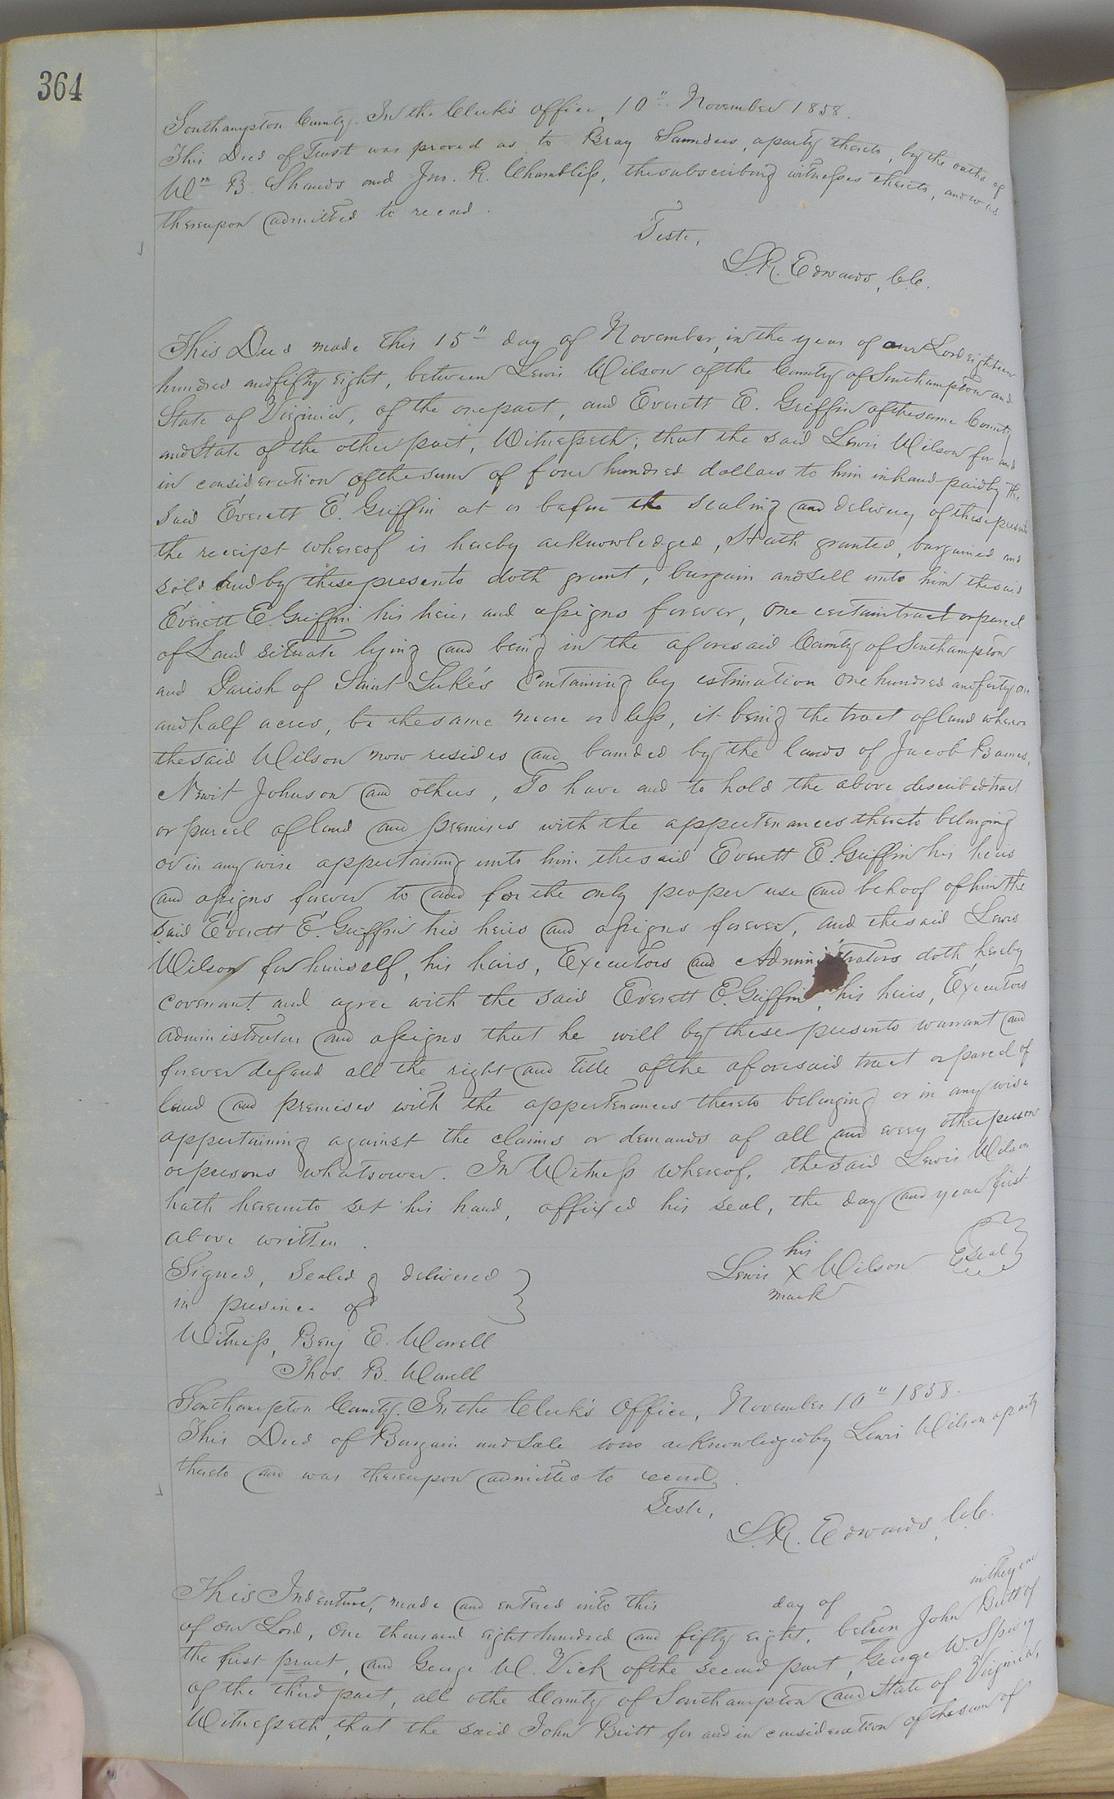 364
Southampton County. In the Clerk's office, 10" November 1858.
This Deed of Trust was proved as to Bray Saunders a party thereto, by the oaths of
Wm B. Shands and Jno. R. Chambliss, the subscribing witnesses thereto, and was
thereupon admitted to record.
Teste,
L.R. Edwards, C.C.
This Deed made this 15" day of November, in the year of our Lord eighteen
hundred and fifty eight, between Lewis Wilson of the County of Southampton and
State of Virginia, of the one part, and Everett E. Griffin of the same County
and State of the other part, Witnesseth; that the said Lewis Wilson for and
in consideration of the sum of four hundred dollars to him in hand paid by the
said Everett E. Griffin at or before the sealing and delivery of these presents
the receipt whereof is hereby acknowledged, Hath granted, bargained and
sold and by these presents doth grant, bargain and sell unto him the said
Everett E. Griffin his heirs and assigns forever, one certain tract or parcel
of Land situate lying and being in the aforesaid County of Southampton
and Parish of Saint Luke's Containing by estimation one hundred and forty one
and half acres, be the same more or less, it being the tract of land whereon
the said Wilson now resides and bounded by the lands of Jacob Barnes,
Newit Johnson and others, To have and to hold the above described tract
or parcel of land and premises with the appurtenances thereto belonging
or in any wise appertaining unto him the said Everett E. Griffin his heirs
and assigns forever to and for the only proper use and behoof of him the
said Everett E. Griffin his heirs and assigns forever, and the said Lewis
Wilson for himself, his heirs, Executors and Administrators doth hereby
covenant and agree with the said Everett E. Griffin, his heirs, Executors
administrators and assigns that he will by these presents warrant and
forever defend all the right and title of the aforesaid tract or parcel of
land and premises with the appertenances thereto belonging or in any wise
appertaining against the claims or demands of all and every other person
or persons whatsoever. In Witness whereof, the said Lewis Wilson
hath hereunto set his hand, affixed his seal, the day and year first
above written.
Signed, Sealed & delivered
in presence of
his
Lewis X Wilson Seal
mark
Witness, Benj E. Worrell
Thos. B. Worrell
Southampton County. In the Clerk's Office, November 10" 1858.
This Deed of Bargain and Sale was acknowledged by Lewis Wilson a party
thereto and was thereupon admitted to record.
Teste,
L.R. Edwards, C.C.
This Indenture, made and entered into this day of in the year
of our Lord, One thousand eight hundred and fifty eight, between John Britt of
the first praet, and George W. Vick of the second part, George W. Spivey
of the third part, all othe County of Southampton and State of Virginia,
Witnesseth, that the said John Britt for and in consideration of the sum of